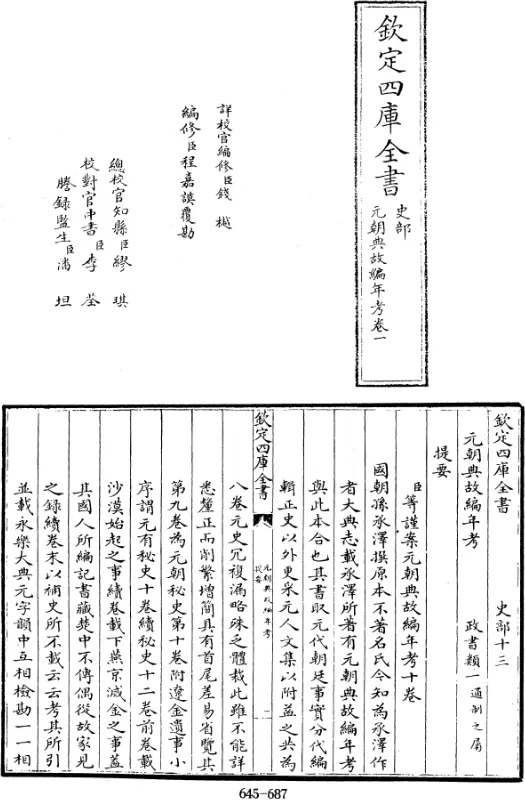 欽定四庫全書
史部
元朝典故編年考卷一
詳校官編修臣錢樾
編修臣程嘉謨覆勘
總校官知縣臣繆琪
校對官中書臣李荃
謄録監生臣潘坦
欽定四庫全書 史部十三
元朝典故編年考 政書類一通制之屬
提要
臣等謹案元朝典故編年考十卷
國朝孫承澤撰原本不著名氏今知為承澤作
者大典志載承澤所著有元朝典故編年考
與此本合也其書取元代朝廷事實分代編
輯正史以外更采元人文集以附益之共為
欽定四庫全書
元朝典故編年考
提要
一
八卷元史冗複漏略殊乏體裁此雖不能詳
悉釐正而削繁增簡具有首尾差易省覽其
第九卷為元朝秘史第十卷附遼金遺事小
序謂元有秘史十卷續秘史十二卷前卷載
沙漠始起之事續卷載下燕京滅金之事蓋
其國人所編記書藏禁中不傳偶從故家見
之録續卷末以補史所不載云云考其所引
並載永樂大典元字韻中互相檢勘一一相
645-687